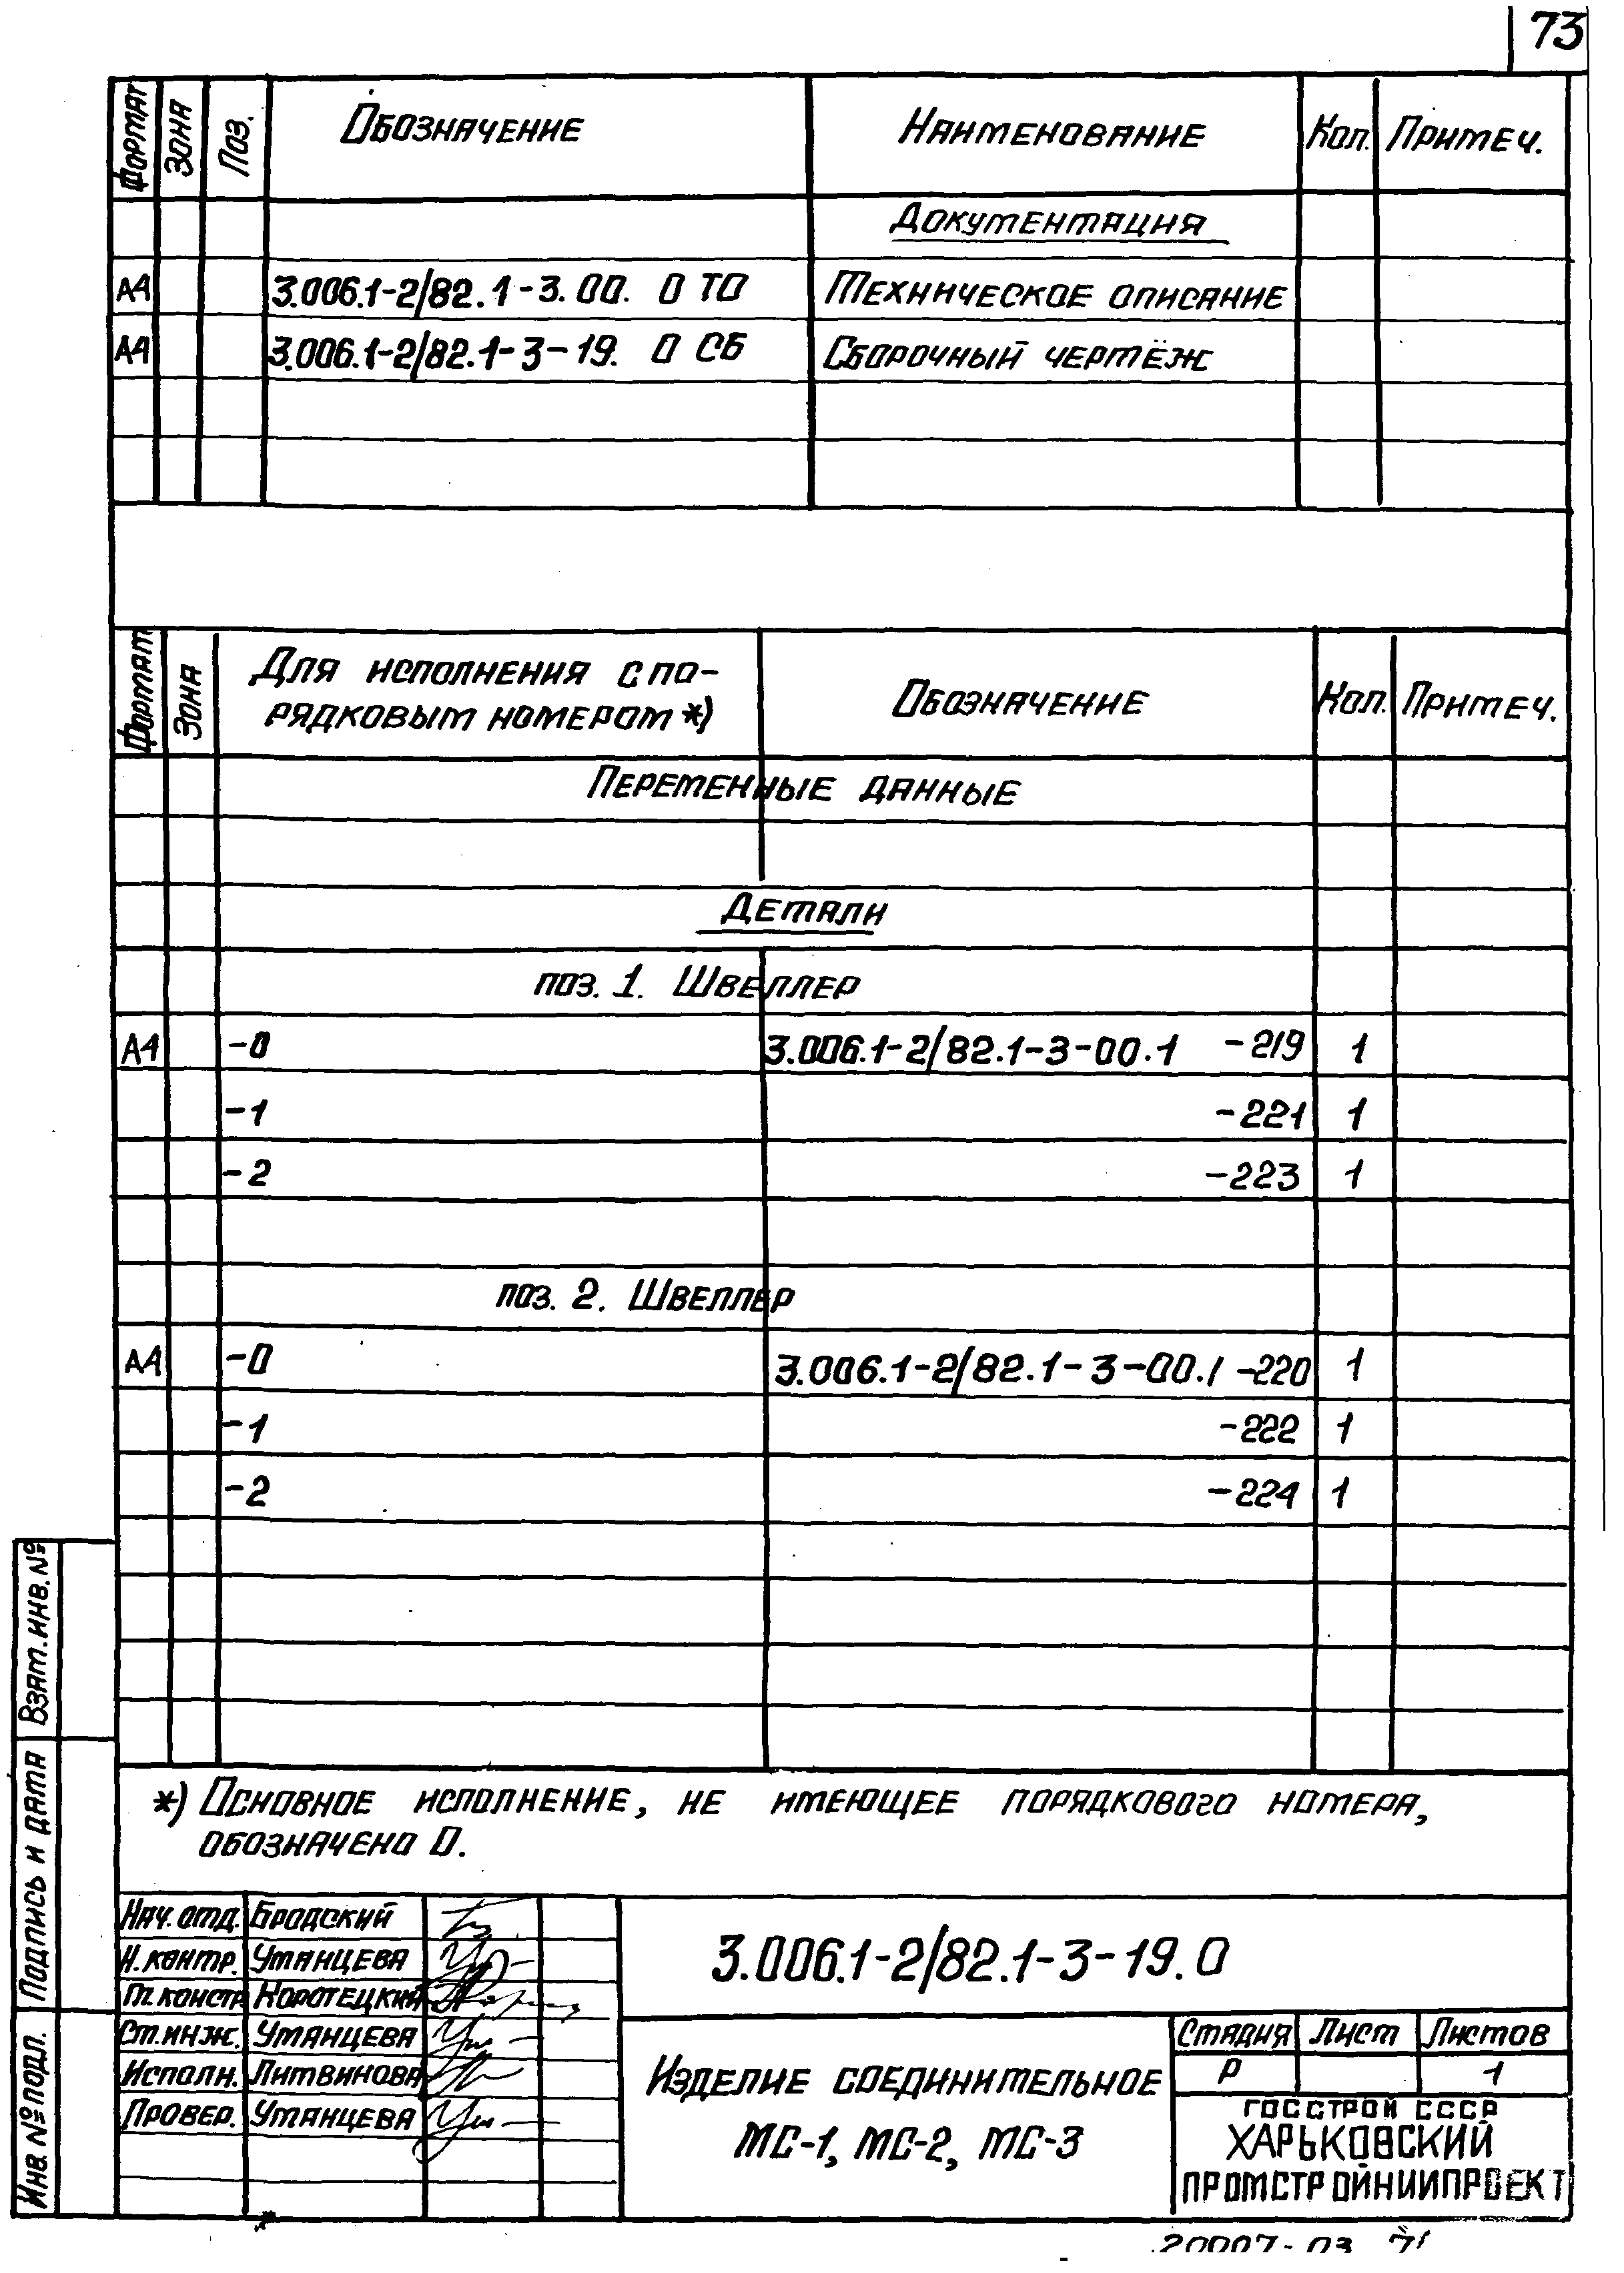 73
Формат Зона Поз. Обозначение Наименование Кол. Примеч.
Документация
А4 3.006.1-2/82.1-3.00. 0 ТО Техническое описание
А4 3.006.1-2/82.1-3-19. 0 СБ Сборочный чертёж
Формат Зона Для исполнения с по-
рядковым номером *) Обозначение Кол. Примеч.
Переменные данные
Детали
поз. 1. Швеллер
А4 -0 3.006.1-2/82.1-3-00.1 -219 1
-1 -221 1
-2 -223 1
поз. 2. Швеллер
А4 -0 3.006.1-2/82.1-3-00.1 -220 1
-1 -222 1
-2 -224 1
*) Основное исполнение, не имеющее порядкового номера,
обозначено 0.
Взам. инв. №
Подпись и дата
Инв. № подл.
Нач. отд. Бродский
Н. контр. Уманцева
Гл. констр. Коротецкий
Ст. инж. Уманцева
Исполн. Литвинова
Провер. Уманцева
3.006.1-2/82.1-3-19.0
Изделие соединительное
МС-1, МС-2, МС-3
Стадия Лист Листов
Р 1
ГОССТРОЙ СССР
ХАРЬКОВСКИЙ
ПРОМСТРОЙНИИПРОЕКТ
20007-03